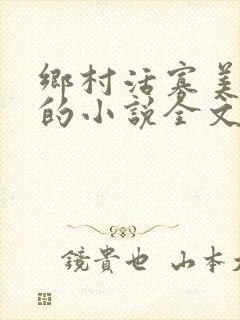 鄉村活寡美
的小說全文
鏡貴也 山本